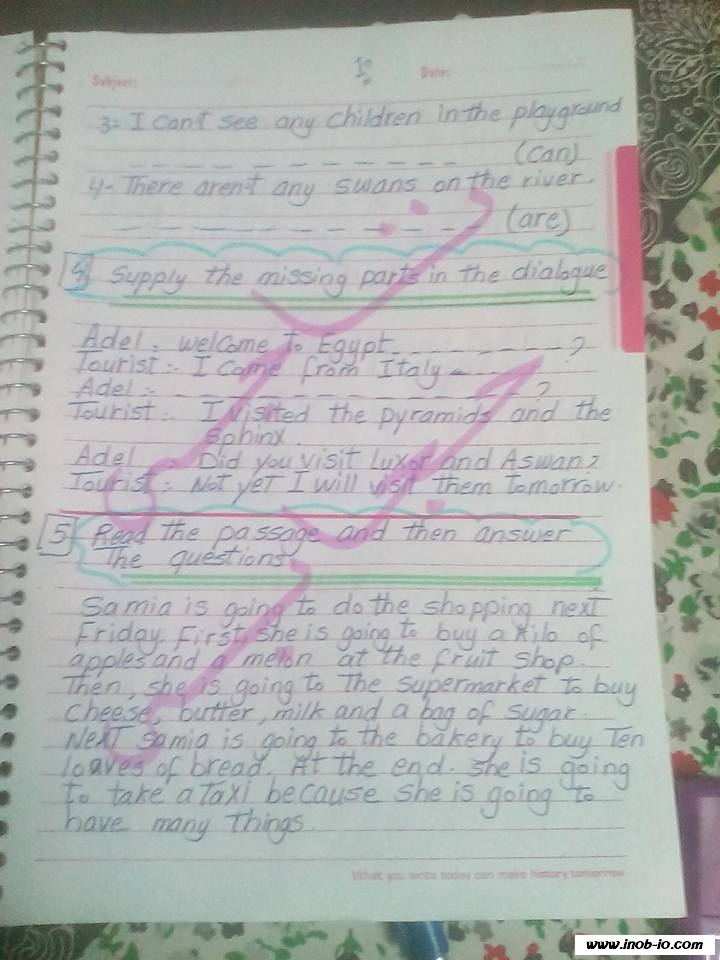 Subject:
10
Date:
3- I can't see any children in the playground
(can)
4- There aren't any swans on the river.
(are)
4 Supply the missing parts in the dialogue
Adel : welcome to Egypt. ?
Tourist :- I come from Italy
Adel :- ?
Tourist :- I visited the pyramids and the
sphinx.
Adel : Did you visit luxor and Aswan?
Tourist :- Not yet I will visit them tomorrow.
5 Read the passage and then answer
The questions
Samia is going to do the shopping next
Friday. First, she is going to buy a kilo of
apples and a melon at the fruit shop.
Then, she is going to The supermarket to buy
cheese, butter, milk and a bag of sugar.
NeXT Samia is going to the bakery to buy Ten
loaves of bread. At the end. she is going
to take a Taxi because she is going to
have many Things.
What you write today can make history tomorrow
www.inob-io.com